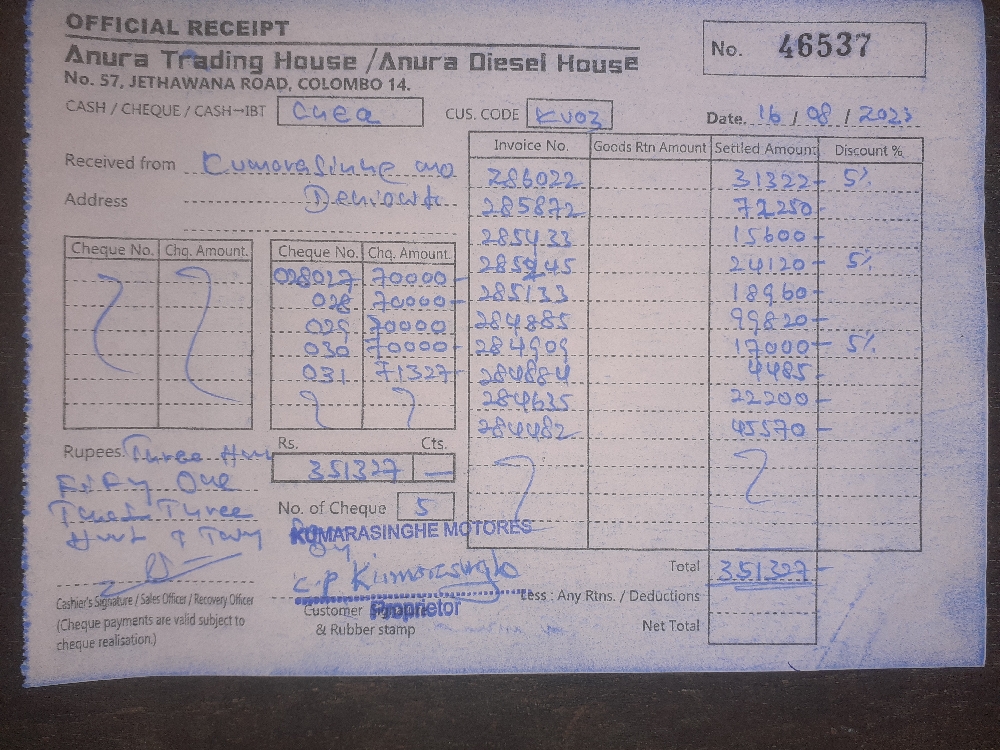 OFFICIAL RECEIPT
Anura Trading House /Anura Diesel House
No. 57, JETHAWANA ROAD, COLOMBO 14.
No. 46537
CASH / CHEQUE / CASH-IBT CUS. CODE KU03 Date. 16 / 08 / 2023
Received from Kumarasinghe mo
Address
Cheque No. Chq. Amount
Cheque No. Chq. Amount
028027 70000-
028 70000-
029 70000
030 70000-
031 71327-
Invoice No. Goods Rtn Amount Settled Amount Discount %
286022 31322- 5%
285872 72250-
285433 15600-
285245 24120- 5%
285133 18960-
284885 99820-
284909 17000- 5%
284884 4485-
284635 22200-
284482 45570-
Rs. Cts.
351327 —
Rupees. Three Hun
Fifty One
Three
No. of Cheque 5
KUMARASINGHE MOTORES
Proprietor
Cashier's Signature / Sales Officer / Recovery Officer
(Cheque payments are valid subject to
cheque realisation.)
Customer
& Rubber stamp
Total 351327-
Less : Any Rtns. / Deductions
Net Total